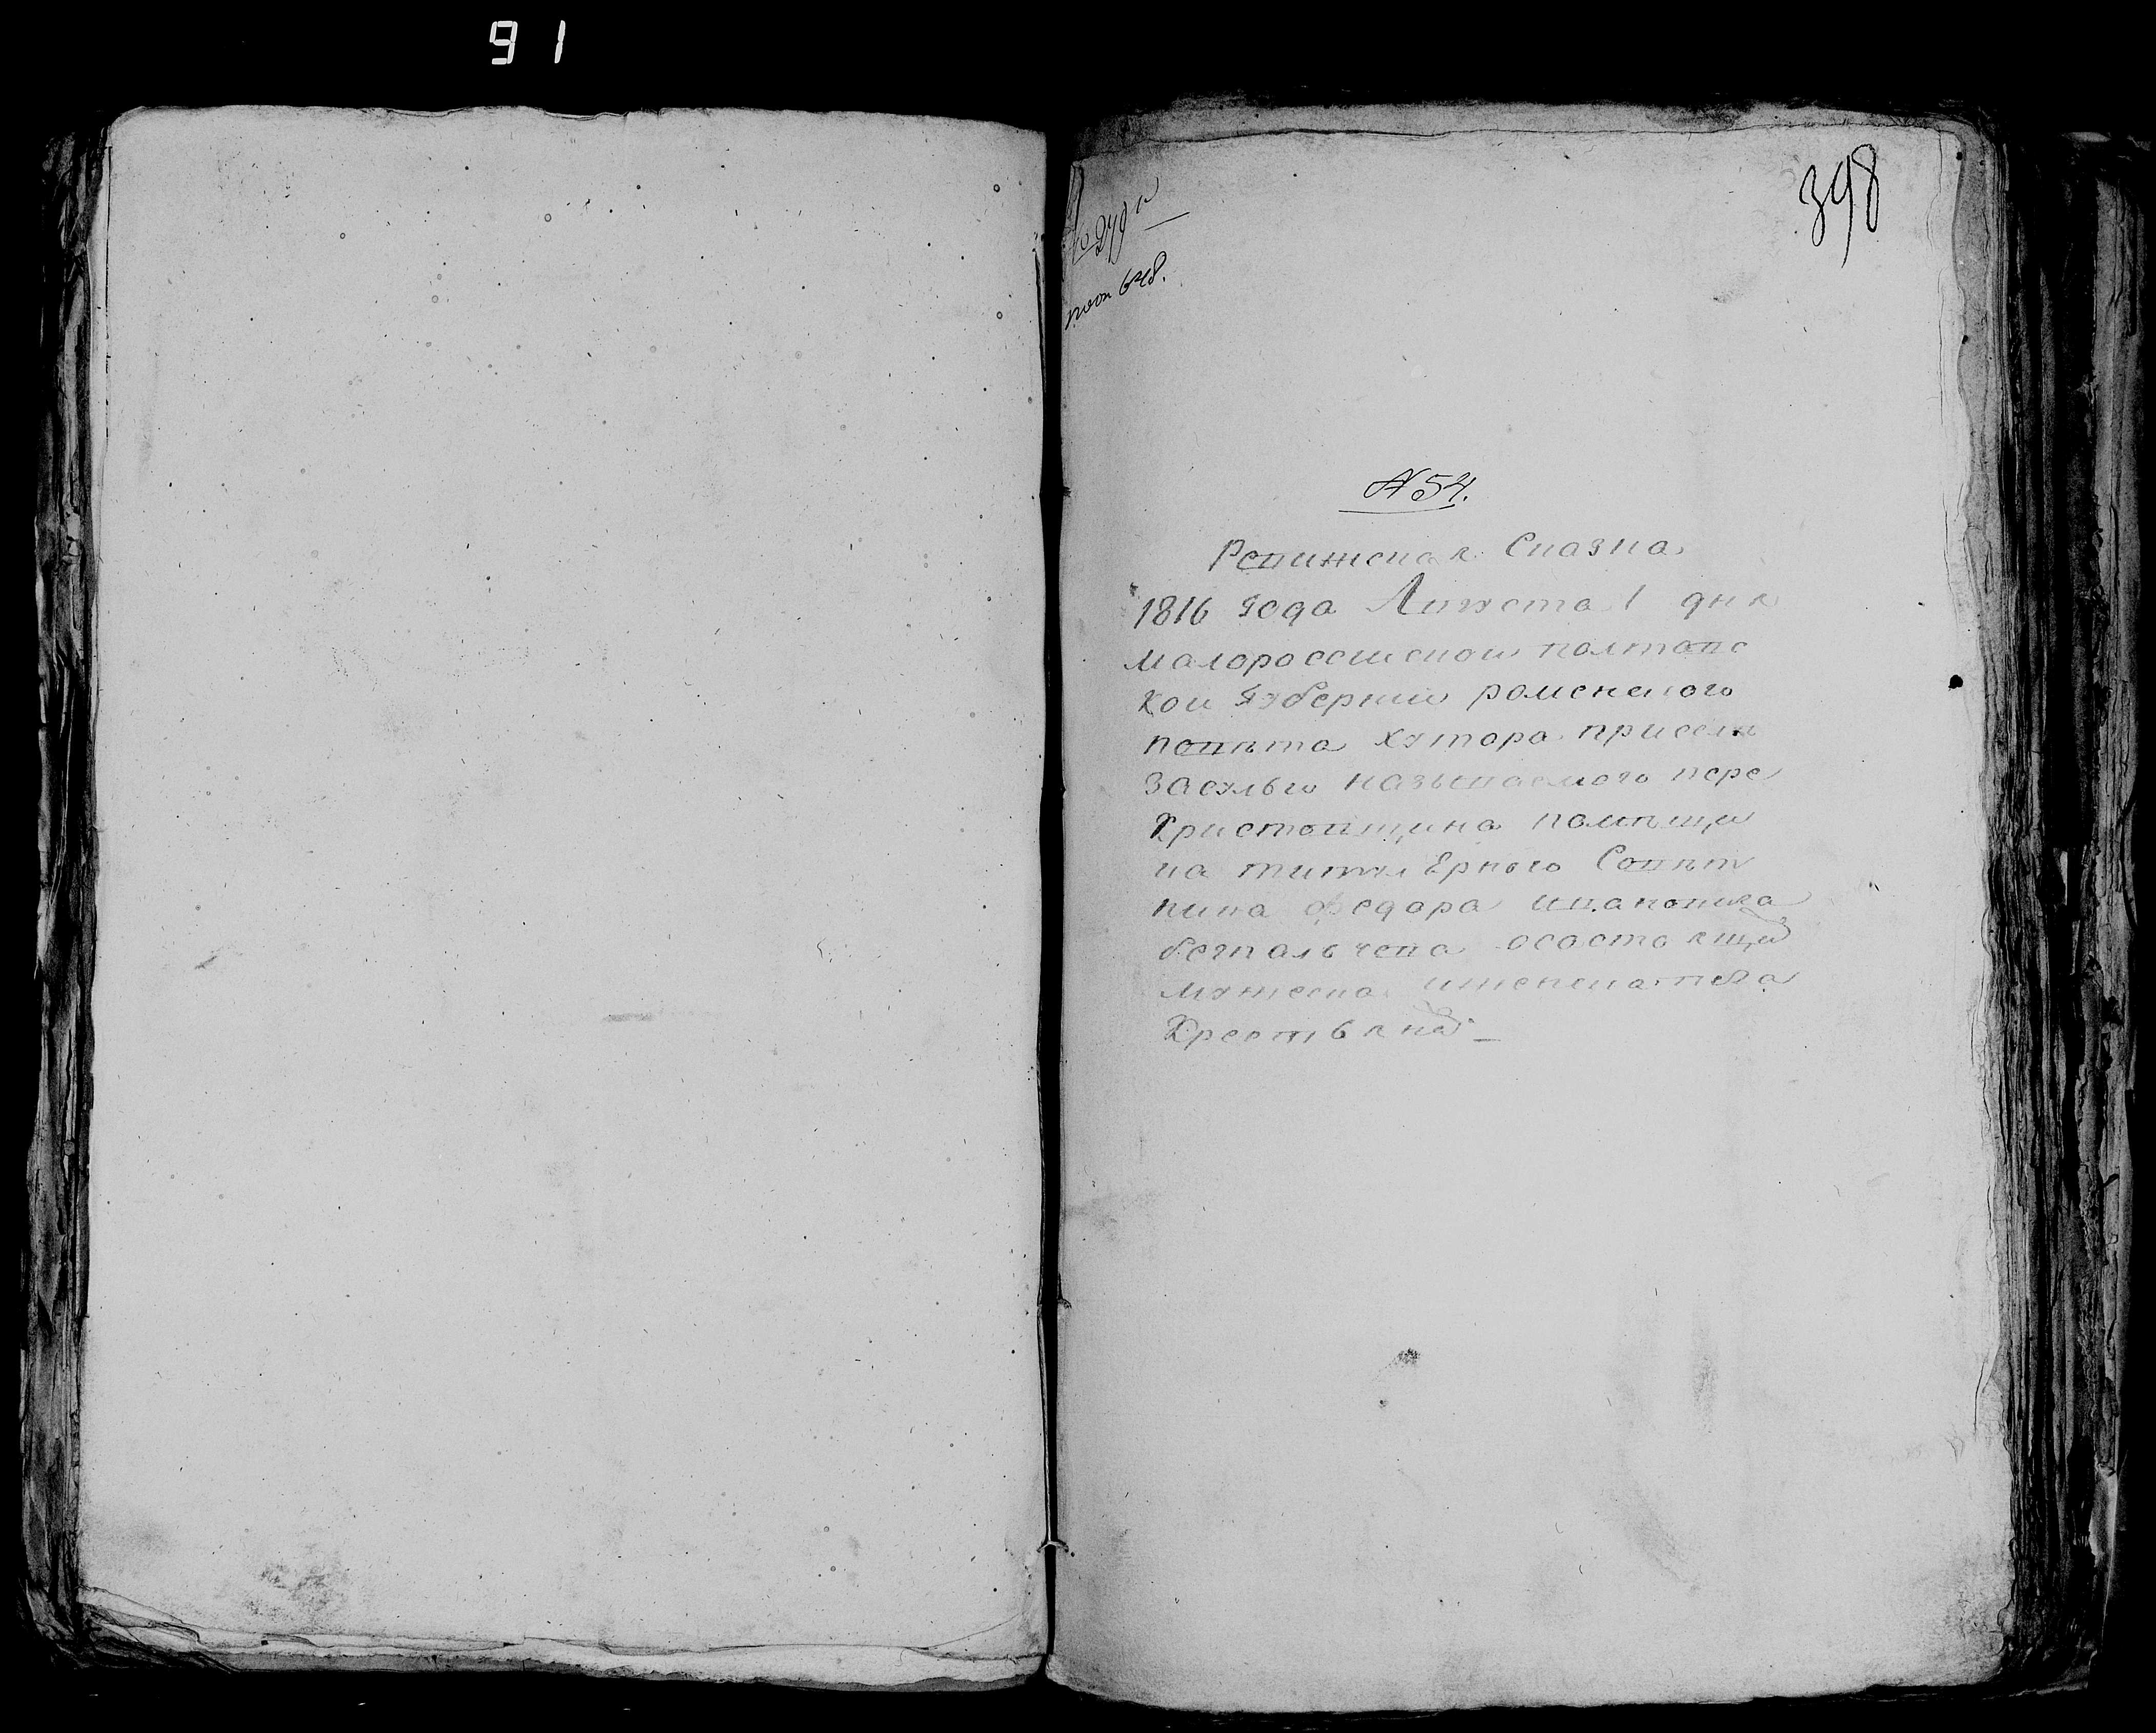 91
398
№ 279
пооп 648.
№ 54.
Ревижская Сказка
1816 года Августа 1 дня
малороссийской полтавс
кой Губернии роменского
повѣта хутора присели
засулью называемого пере
христовщина помѣщи
ка титулЕрного Совѣт
ника федора ивановича
безпальчева осостоящи<sup>х</sup>
мужеска иженска пола
Крестьяна<sup>х</sup> —